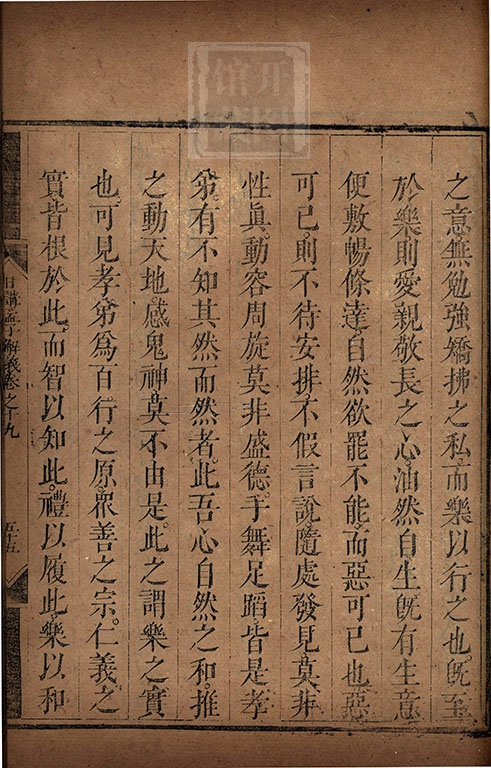 之意無勉強矯拂之私而樂以行之也旣至
於樂則愛親敬長之心油然自生旣有生意
便敷暢條達自然欲罷不能而惡可已也惡
可已則不待安排不假言說隨處發見莫非
性眞動容周旋莫非盛德手舞足蹈皆是孝
弟有不知其然而然者此吾心自然之和推
之動天地感鬼神莫不由是此之謂樂之實
也可見孝弟爲百行之原衆善之宗仁義之
實皆根於此而智以知此禮以履此樂以和
日講孟子解義卷之十九
五十五